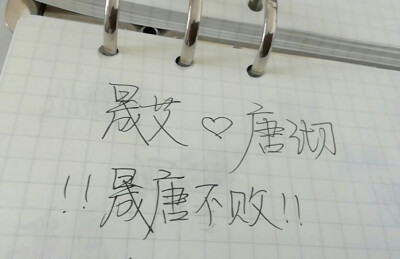 晟艾♡唐沏
!!晟唐不败!!